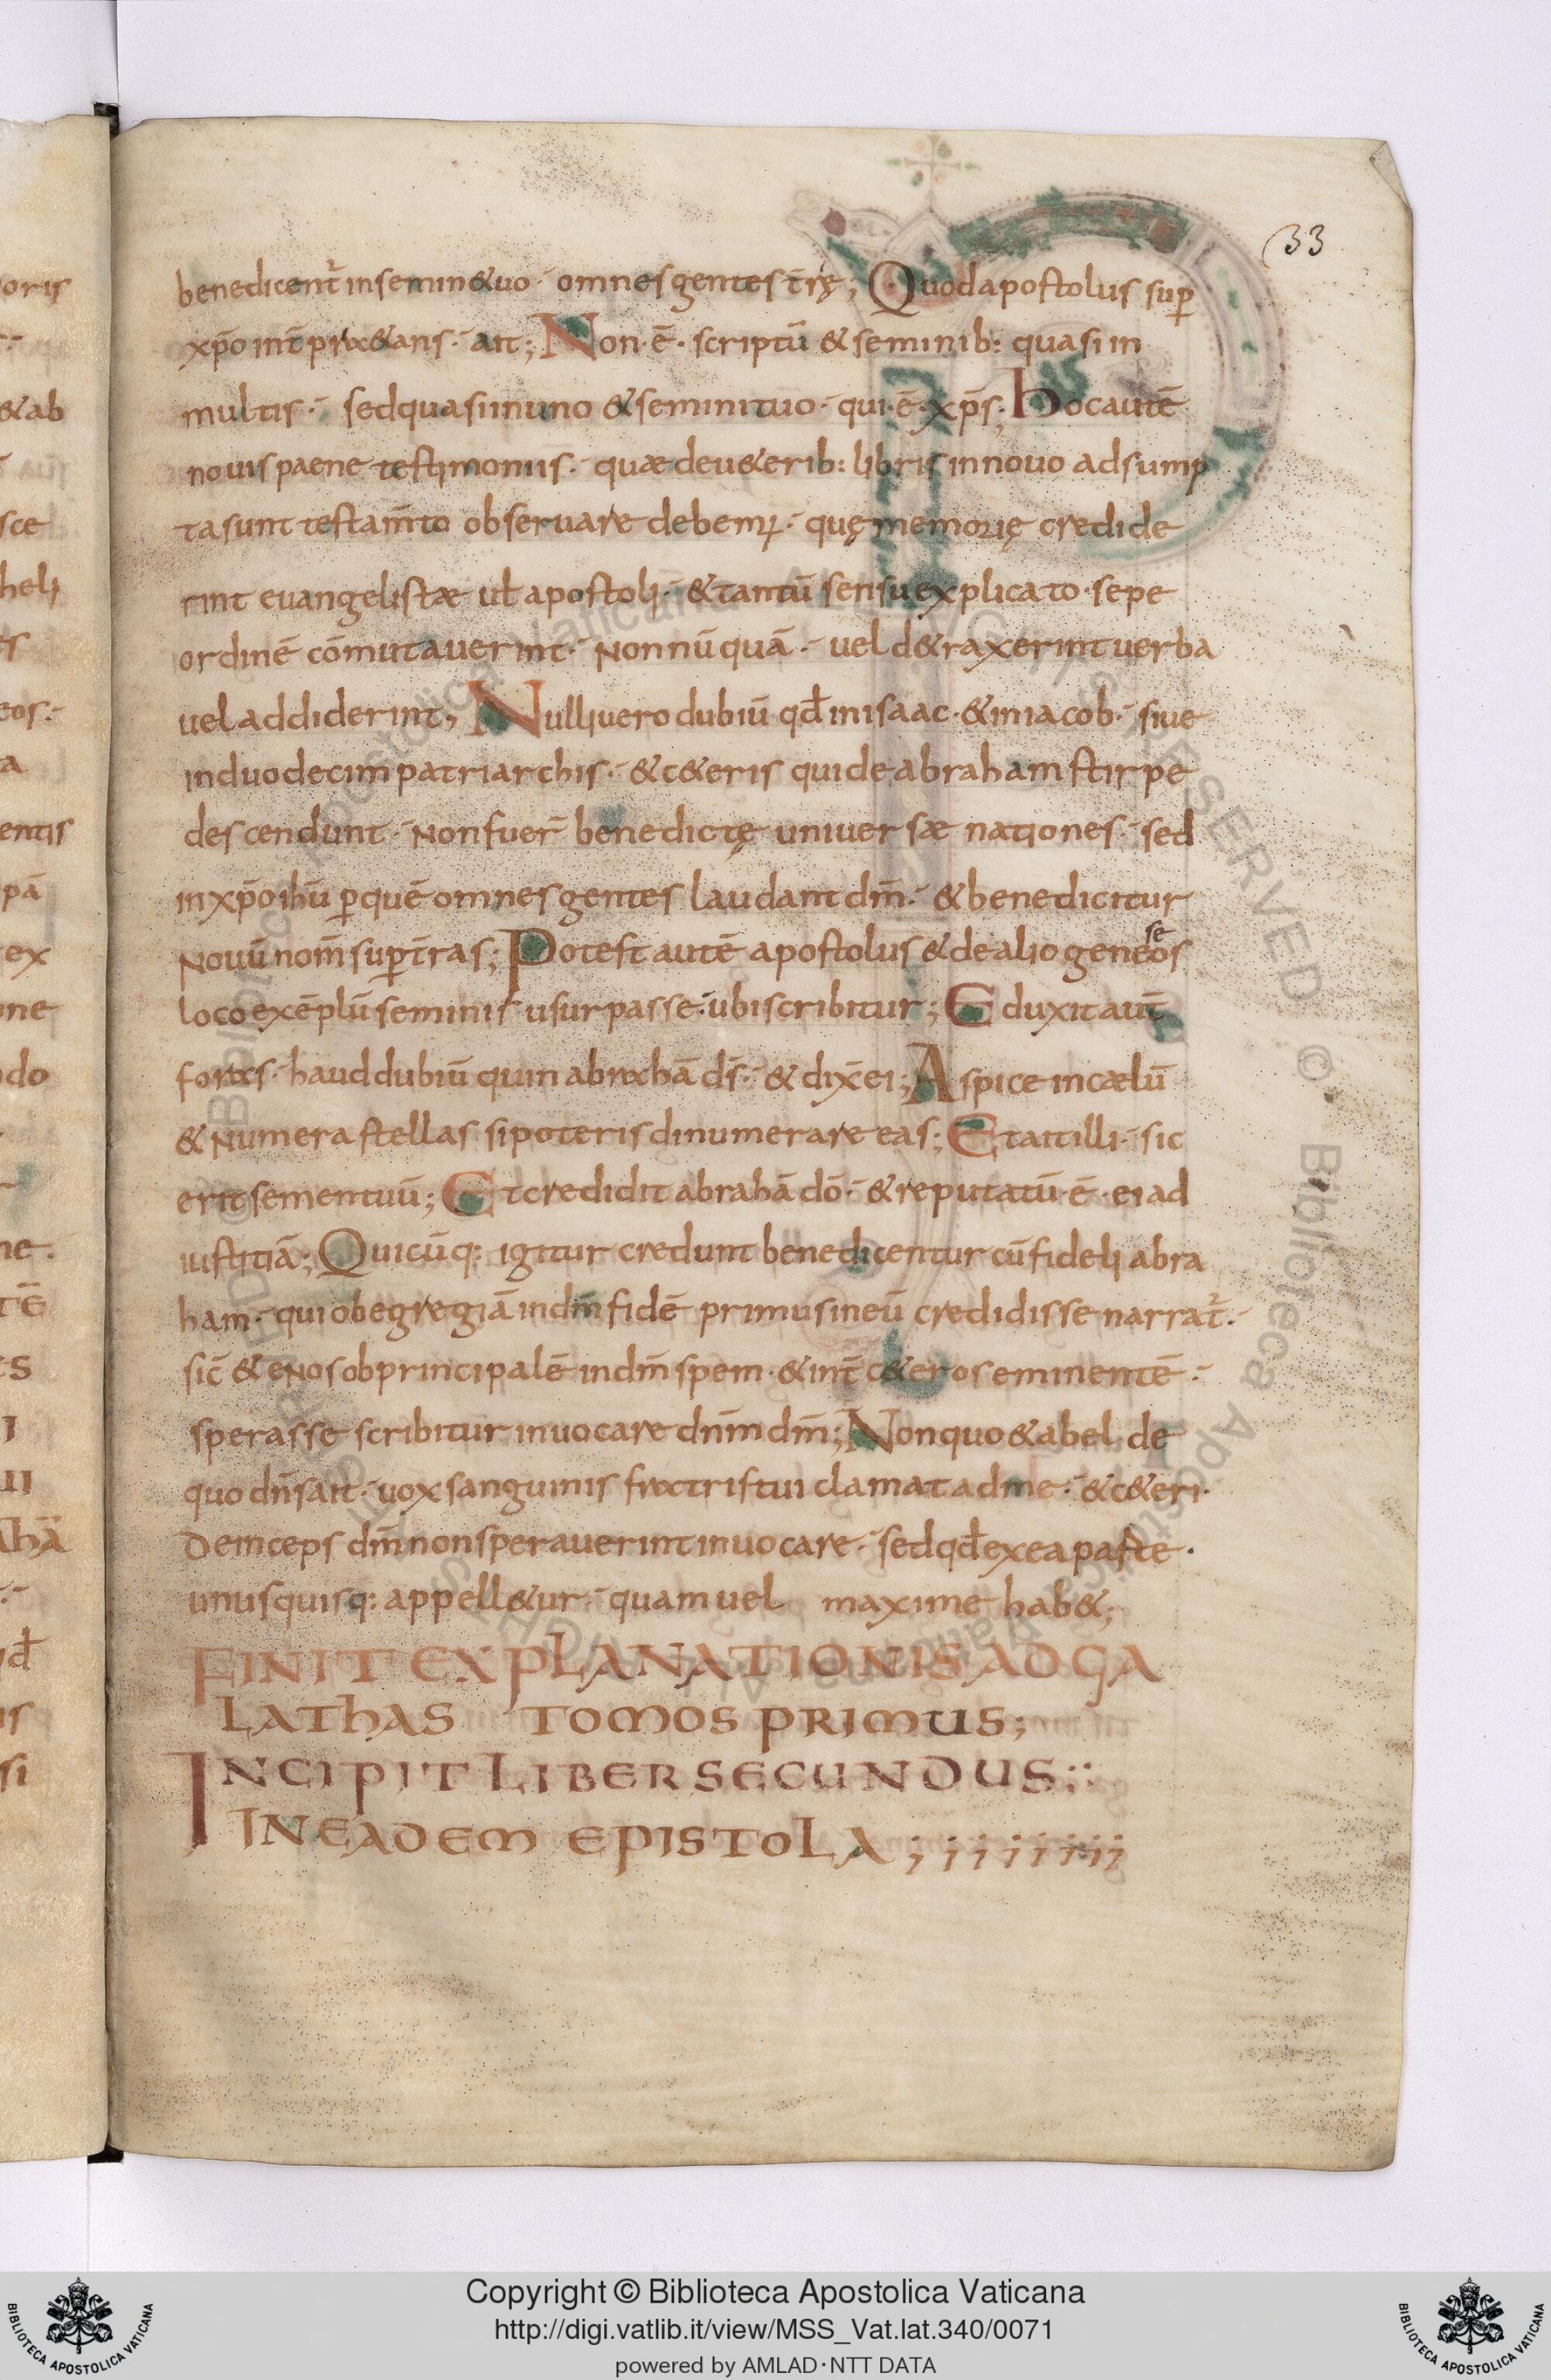 33
benedicent᷑ in semin& uo· omnes gentes t̄rę; Quod apostolus sup̱
xp̄o int̄pr&ans· ait; Non·ē· scriptū & seminib: quasi in
multis· sed quasi in uno & semini tuo· qui·ē·xp̄s; hoc autē
nouis paene testimoniis· quæ de u&erib: libris in nouo adsump
ta sunt testam̄to obseruare debem;· quę memorię credide
rint euangelistæ ul̄ apostoli· & tantū sensu explicato· sepe
ordinē cōmutauerint· Non nūquā· uel d&raxerint uerba
uel addiderint; Nulli uero dubiū qđ in isaac· & in iacob· siue
in duodecim patriarchis· & c&eris qui de abraham stirpe
descendunt· Non fuer̄ benedictę uniuersæ nationes· sed
in xp̄o ih̄u p̱ quē omnes gentes laudant dm̄· & benedicitur
Nouū nom̄ sup̱ t̄ras; Potest autē apostolus & de alio geneseos
loco exēplū seminis usurpasse· ubi scribitur; Eduxit aut̄
foras· haud dubiū quin abrahā ds̄· & dix̄ ei; Aspice in cælū
& Numera stellas si poteris dinumerare eas; Et ait illi· sic
erit semen tuū; Et credidit abrahā dō· & reputatū·ē·ei ad
iustitiā; Quicūq: igitur credunt benedicentur cū fideli abra
ham· qui ob egregiā in dm̄ fidē primus in eū credidisse narrat᷑·
sic̄ & eNos ob principalē in dm̄ spem· & int̄ c&eros eminentē·
sperasse scribitur inuocare dnm̄ dm̄; Non quo & abel de
quo dn̄s ait· uox sanguinis fratris tui clamat ad me· & c&eri·
Deinceps dm̄ non sperauerint inuocare· sed qđ ex ea paste·
unusquisq: appell&ur· quam uel maxime hab&;
FINIT EXPLANATIONIS AD GA
LATHAS TOMOS PRIMUS;
INCIPIT LIBER SECUNDUS;:
IN EADEM EPISTOLA ; ; ; ; ; ; ;
Copyright © Biblioteca Apostolica Vaticana
http://digi.vatlib.it/view/MSS_Vat.lat.340/0071
powered by AMLAD·NTT DATA
BIBLIOTECA APOSTOLICA VATICANA
BIBLIOTECA APOSTOLICA VATICANA